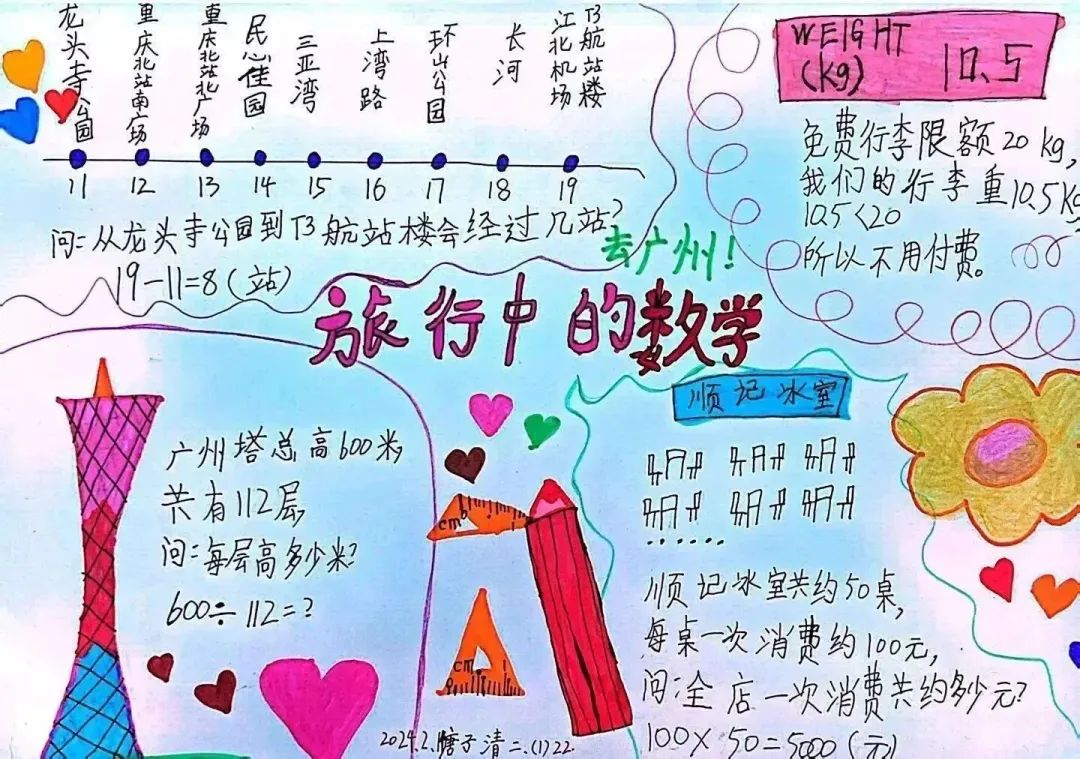 龙头寺公园
重庆北站南广场
重庆北站北广场
民心佳园
三亚湾
上湾路
环山公园
长河
江北机场
T3航站楼
11 12 13 14 15 16 17 18 19
问:从龙头寺公园到T3航站楼会经过几站?
19-11=8(站)
WEIGHT
(kg)
10.5
免费行李限额20kg,
我们的行李重10.5kg
10.5<20
所以不用付费。
去广州!
旅行中的数学
广州塔总高600米,
共有112层
问:每层高多少米?
600÷112=?
cm
cm
顺记冰室
......
顺记冰室共约50桌,
每桌一次消费约100元,
问:全店一次消费共约多少元?
100×50=5000(元)
2024.2.
子清二.(1)22.